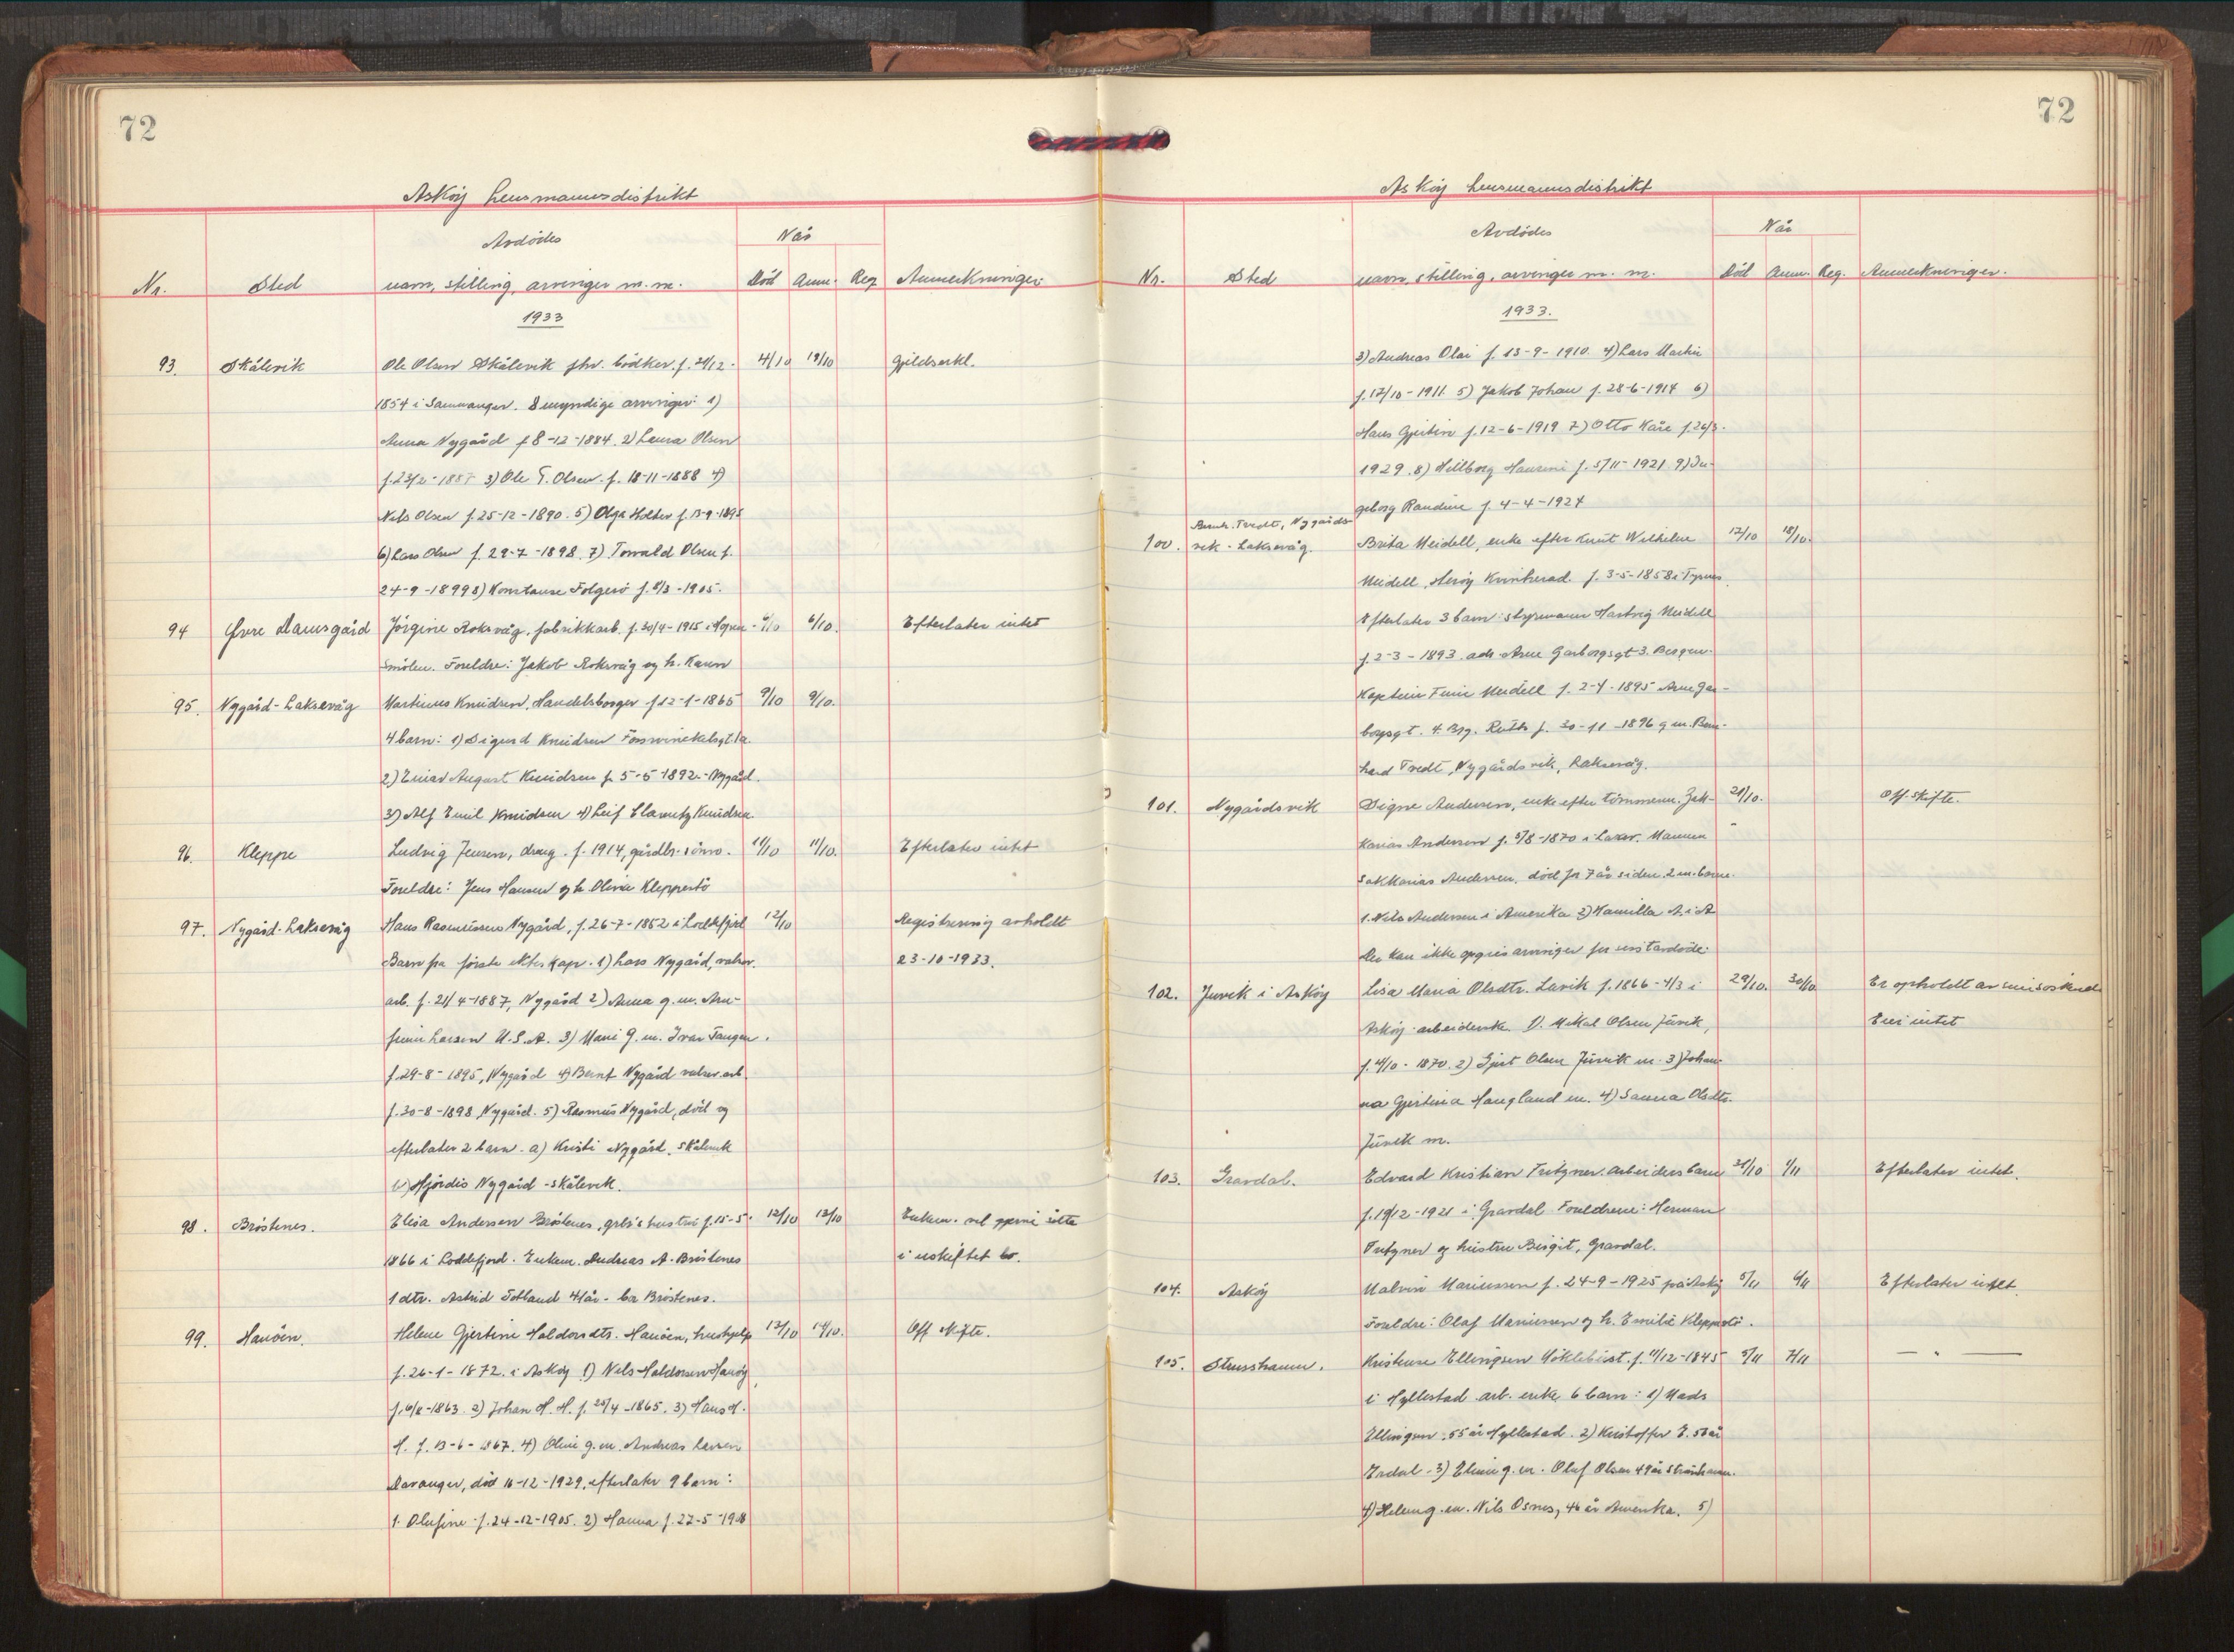 72
Askøy lensmannsdistrikt
Avdødes
Når
Nr. Sted navn, stilling, arvinger m. m. Död Anm. Reg Anmerkninger
1933
93. Skålevik Ole Olsen Skålevik fhv. bödker. f. 21/12- 4/10 19/10 Gjeldserkl.
1854 i Samnanger. 8 myndige arvinger: 1)
Anna Nygård f 8-12-1884. 2) Laura Olsen
f. 23/2-1887 3) Ole T. Olsen. f. 18-11-1888 4)
Nils Olsen f. 25-12-1890. 5) Olga Holter f. 13-9-1895
6) Lars Olsen f. 29-7-1898. 7) Torvald Olsen f.
24-9-1899 8) Konstanse Folgerö f. 8/3-1905.
94 Øvre Damsgård Jörgine Roksvåg, fabrikkarb. f. 30/4-1915 i 6/10 6/10. Efterlater intet
Smölen. Foreldre: Jakob Roksvåg og h. Karen
95. Nygård-Laksevåg Martinus Knudsen, Handelsborger f 12-1-1865 9/10 9/10.
4 barn: 1) Sigurd Knudsen
2) Einar August Knudsen f. 5-5-1892.-Nygård.
3) Alf Emil Knudsen 4) Leif Knudsen
96. Kleppe Ludvig Jensen, dreng. f. 1914, gårdbr. sönn. 11/10 11/10. Efterlater intet
Foreldre: Jens Hansen og h. Olina Kleppestö
97. Nygård-Laksevåg Hans Rasmussen Nygård, f. 26-7-1862 i Loddefjord 12/10 Registrering avholdt
Barn fra förste ekteskap. 1) Lars Nygård, 23-10-1933.
arb. f. 21/4-1887, Nygård 2) Anna g. m. Arn-
finn Larsen U.S.A. 3) Marie g. m. Ivar Tangen.
f. 29-8-1895, Nygård 4) Bernt Nygård arb.
f. 30-8-1898 Nygård. 5) Rasmus Nygård, död og
efterlater 2 barn. a) Kristi Nygård, Skålevik
b) Hjördis Nygård - Skålevik.
98. Bröstenes. Elisa Andersen Bröstenes, grbr's hustru f. 15-5- 12/10 13/10 Enkem. vil gjerne sitte
1866 i Loddefjord. Enkem. Andreas A. Bröstenes i uskiftet bo.
1 dtr. Astrid Totland 41 år - bor Bröstenes.
99. Hanöen. Helene Gjertine Haldorsdtr. Hanöen, hushjelp 13/10 14/10. Off skifte.
f. 26-1-1872. i Askøy 1) Nils Haldorsen Hanöy
f. 6/8-1863. 2) Johan H. H. f. 25/4-1865. 3) Hans H.
H. f. 13-6-1867. 4) Oline g. m. Andreas Larsen
Davanger, död 16-12-1929, efterlater 9 barn:
1. Olufine f. 24-12-1905. 2) Hanna f. 27-5-1908
72
Askøy lensmannsdistrikt
Avdödes
Når
Nr. Sted navn, stilling, arvinger m. m. Död Anm. Reg. Anmerkninger.
1933.
3) Andreas Olai f. 13-9-1910. 4) Lars Martin
f. 17/10-1911. 5) Jakob Johan f. 28-6-1914 6)
Hans Gjertin f. 12-6-1919 7) Otto Kåre f. 26/3-
1929. 8) Hillborg Hansine f. 5/11-1921 9) In-
geborg Randine f. 4-4-1924
Bernh. Tvedt, Nygårds-
100. vik - Laksevåg. Brita Meidell, enke efter Knut Wilhelm 17/10 18/10.
Meidell, Heröy Kvinherad. f. 3-5-1858 i Tysnes
Efterlater 3 barn: styrmann Hartvig Meidell
f. 2-3-1893. adr. Arne Garborgsgt 3. Bergen.
Kaptein Finn Meidell f. 2-4-1895 Arne Gar-
borgsgt. 4. Brg. Ruth f. 30-11-1896 g m. Bern-
hard Tvedt, Nygårdsvik, Laksevåg.
101. Nygårdsvik Signe Andersen, enke efter tömmerm. Zak- 21/10. Off. skifte.
karias Andersen f. 5/8-1870 i Mannen
Sakkarias Andersen, död for 7 år siden. 2 m. barn.
1. Nils Andersen i Amerika 2) Kamilla A. i A
Der kan ikke opgies arvinger
102. Juvik i Askøy Lisa Maria Olsdtr. Juvik f. 1866-4/3 i 29/10. 30/10 Er opholdt av sine søskende
Askøy arbeiderske. 1). Mikal Olsen Juvik, Eier intet
f. 4/10-1870. 2) Gjert Olsen Juvik m. 3) Johan-
na Gjertina Haugland m. 4) Sanna Olsdtr.
Juvik m.
103. Gravdal. Edvard Kristian Fritzner. arbeiders barn 31/10 1/11 Efterlater intet.
f. 19/12-1921 i Gravdal Foreldrene: Herman
Fritzner og hustru Birgit, Gravdal.
104. Askøy Malvin Marinussen f. 24-9-1925 på Askøy 5/11 6/11 Efterlater intet.
Foreldre: Olaf Marinussen og h. Emilie Kleppestö.
105. Strusshamn. Kristense Ellingsen Myklebust. f. 11/12-1845 5/11 7/11 — " —
i Hyllestad arb. enke 6 barn: 1) Mads
Ellingsen. 55 år Hyllestad. 2) Kristoffer E. år
Erdal. 3) Eline g. m. Oluf Olsen 49 år Strusshamn.
4) Helene g. m. Nils Osnes, 46 år Amerika. 5)